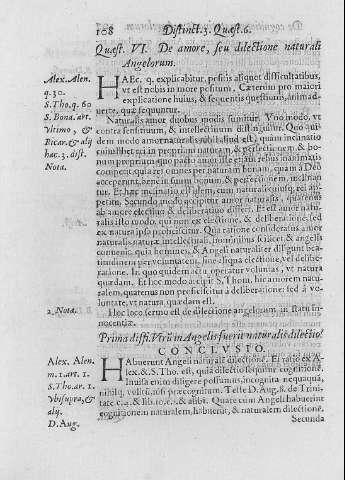 108 Distinct. 3. Quæst. 6.
Quæst. VI. De amore, seu dilectione naturali
Angelorum.
Alex. Alen.
q. 30.
S. Tho. q. 60
S. Bona. art.
Vltimo, &
Ricar. & alij
hac. 3. dist.
Nota.
HAEc. q. explicabitur, positis aliquot difficultatibus,
vt est nobis in more positum. Cæterùm pro maiori
explicatione huius, & sequentis quæstionis, animad-
uerte, quæ sequuntur.
Naturalis amor duobus modis sumitur. Vno modo, vt
contra sensitiuum, & intellectiuum distinguitur. Quo qui-
dem modo amor naturalis nihil aliud est, quàm inclinatio
cuiuslibet rei in propriam naturam, & perfectionem, & bo-
num proprium quo pacto amor ille etiam rebus inanimatis
competit quia res omnes per naturam bonam, quam à Deo
acceperunt, bene in suum bonum, & perfectionem, inclinan
tur. Et hæc inclinatio est idem, cum naturali cuiusq; rei ap-
petitu. Secundo modo accipitur amor naturalis, quatenus
ab amore electiuo & deliberatiuo differt. Et est amor natu-
ralis isto modo, qui non ex electione, & deliberatione, sed
ex natura ipsa proficiscitur. Qua ratione consideratus amor
naturalis naturæ intellectuali, hominibus scilicet & angelis
conuenit. quia homines, & Angeli naturaliter diligunt bea-
titudinem per voluntatem, sine aliqua electione, vel delibe-
ratione. In quo quidem actu operatur voluntas, vt natura
quædam. Et hoc modo accipit S. Thom. hic amorem natu-
ralem, quatenus non proficiscitur à deliberatione: sed à vo-
luntate, vt natura quædam est.
2. Nota.
Hoc loco sermo est de dilectione angelorum in statu in-
nocentiæ.
Prima diffi. Vtrùm in Angelis fuerit naturalis dilectio?
CONCLVSIO.
Alex. Alen.
m. 1. art. 1.
S. Tho. ar. 1.
Vbi supra, &
alij.
D. Aug.
HAbuerunt Angeli naturalem dilectionem. Et ratio ex A-
lex. & S. Tho. est, quia dilectio sequitur cognitionem.
Inuisa enim diligere possumus, incognita nequaquã,
nihilq; volitũ, nisi præcognitum. Teste D. Aug. 8. de Trini-
tate c. 4. & lib. 10. c. & alibi. Quare cùm Angeli habuerint
cognitionem naturalem, habuerũt, & naturalem dilectionẽ.
Secunda